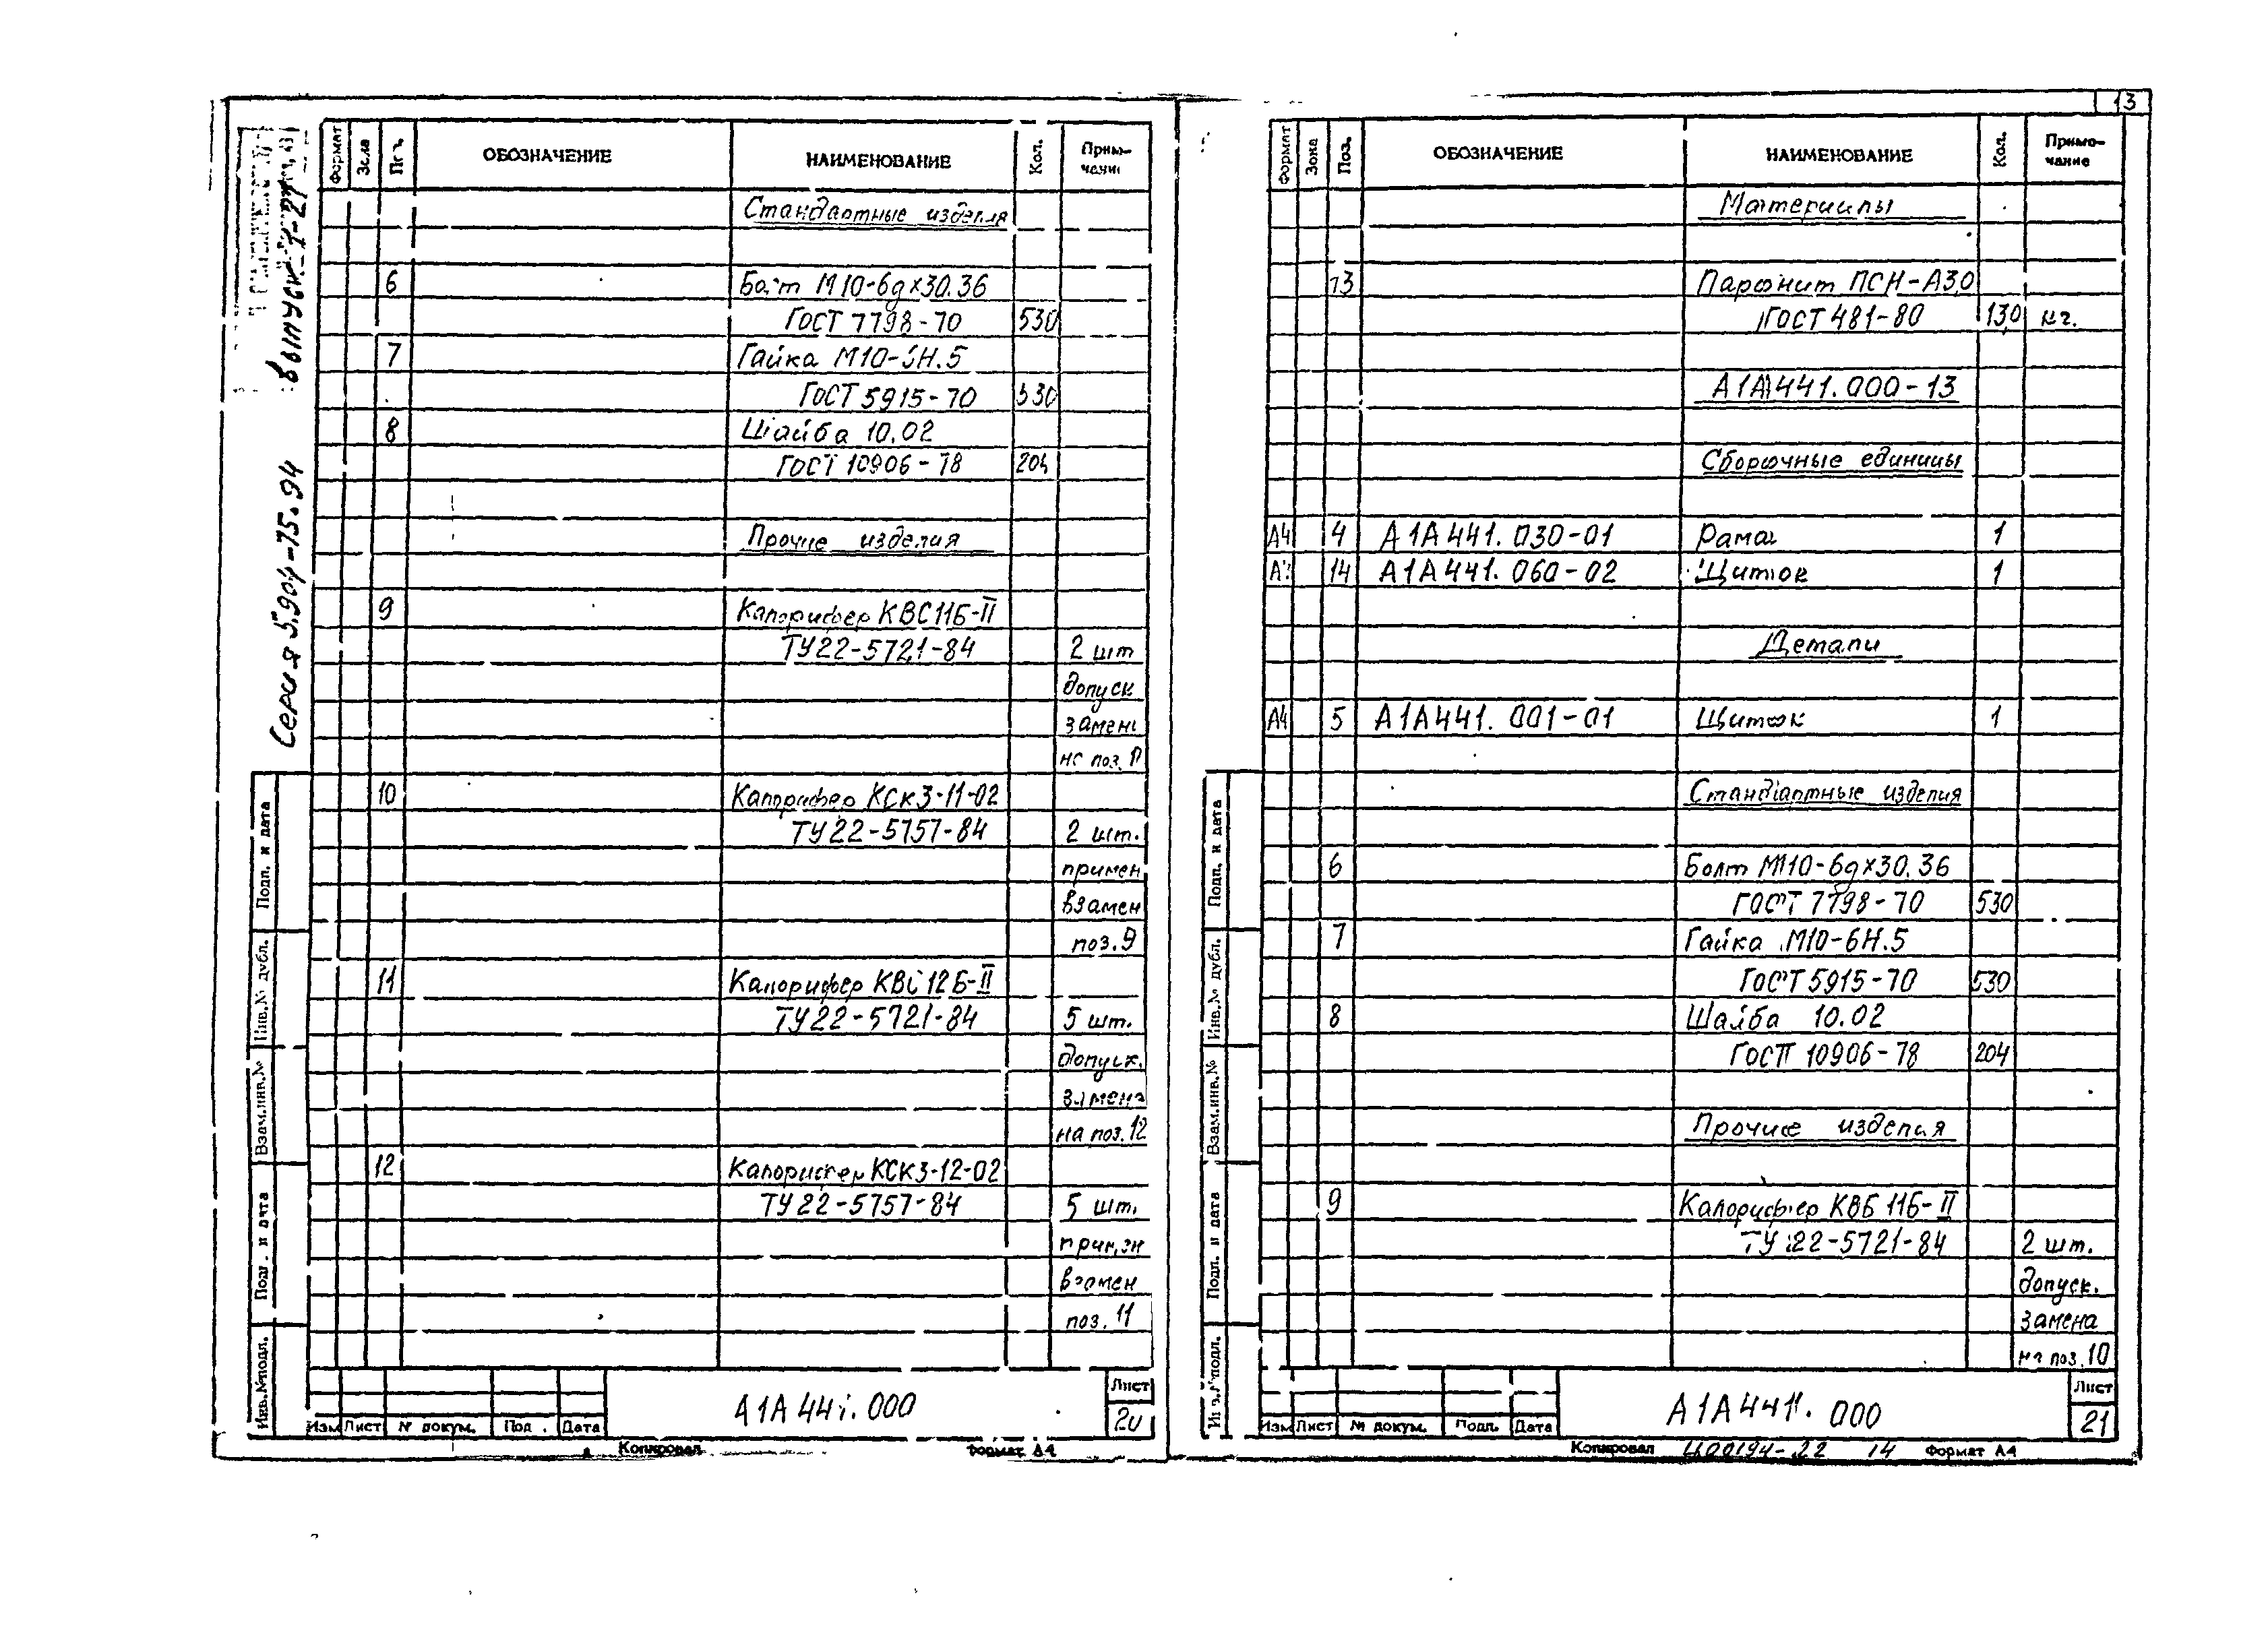 13
Серия 5.904-75.94 выпуск 1-21
Формат Зона Поз. ОБОЗНАЧЕНИЕ НАИМЕНОВАНИЕ Кол. Приме-
чание
Стандартные изделия
6 Болт М10-6gх30.36
ГОСТ 7798-70 530
7 Гайка М10-6Н.5
ГОСТ 5915-70 530
8 Шайба 10.02
ГОСТ 10906-78 204
Прочие изделия
9 Калорифер КВС11Б-II
ТУ22-5721-84 2 шт
допуск
замена
на поз.
10 Калорифер КСк3-11-02
ТУ22-5757-84 2 шт.
примен
взамен
поз.9
11 Калорифер КВС12Б-II
ТУ22-5721-84 5 шт.
допуск.
замена
на поз.12
12 Калорифер КСК3-12-02
ТУ22-5757-84 5 шт.
примен
взамен
поз.11
Подп. и дата
Инв.№ дубл.
Взам.инв.№
Подп. и дата
Инв.№подл.
Изм Лист № докум. Под. Дата
А1А441.000
Лист
20
Копировал Формат А4
Формат Зона Поз. ОБОЗНАЧЕНИЕ НАИМЕНОВАНИЕ Кол. Приме-
чание
Материалы
13 Паронит ПОН-А3,0
ГОСТ 481-80 13,0 кг.
А1А441.000-13
Сборочные единицы
А4 4 А1А441.030-01 Рама 1
14 А1А441.060-02 Щиток 1
Детали
А4 5 А1А441.001-01 Щиток 1
Стандартные изделия
6 Болт М10-6gх30.36
ГОСТ 7798-70 530
7 Гайка М10-6Н.5
ГОСТ 5915-70 530
8 Шайба 10.02
ГОСТ 10906-78 204
Прочие изделия
9 Калорифер КВБ 11Б-II
ТУ 22-5721-84 2 шт.
допуск.
замена
на поз.10
Подп. и дата
Инв.№ дубл.
Взам.инв.№
Подп. и дата
Инв.№подл.
Изм Лист № докум. Подп. Дата
А1А441.000
Лист
21
Копировал Ц00194-22 14 Формат А4